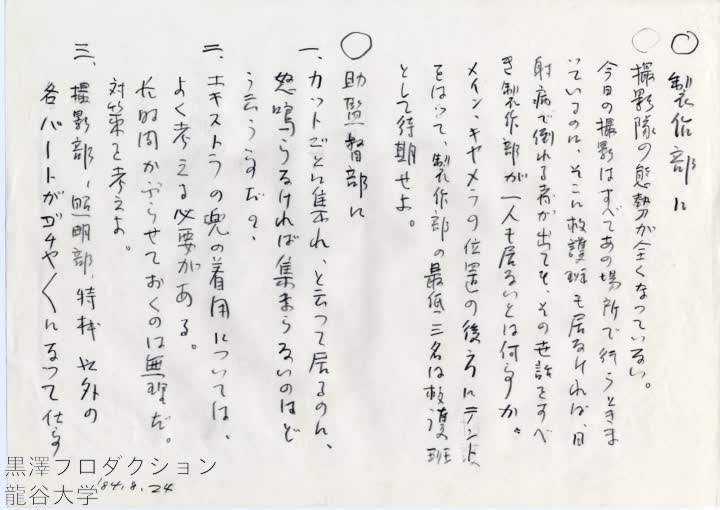 ◯ 製作部に
◯ 撮影隊の態勢が全くなっていない。
今日の撮影はすべてあの場所で行うときま
っているのに、そこに救護班も居なければ、日
射病で倒れる者が出ても、その世話をすべ
き製作部が一人も居ないとは何事か。
メイン、キャメラの位置の後方にテント
をはって、製作部の最低三名は救護班
として待期せよ。
◯ 助監督部に
一、カットごとに集れ、と云って居るのに、
怒鳴らなければ集まらないのはど
う云う事だ?、
二、エキストラの兜の着用については、
よく考える必要がある。
長時間かぶらせておくのは無理だ。
対策を考えよ。
三、撮影部、照明部、特機 以外の
各パートがゴチャ〱になって仕事
黒澤プロダクション
龍谷大学
'84.8.24